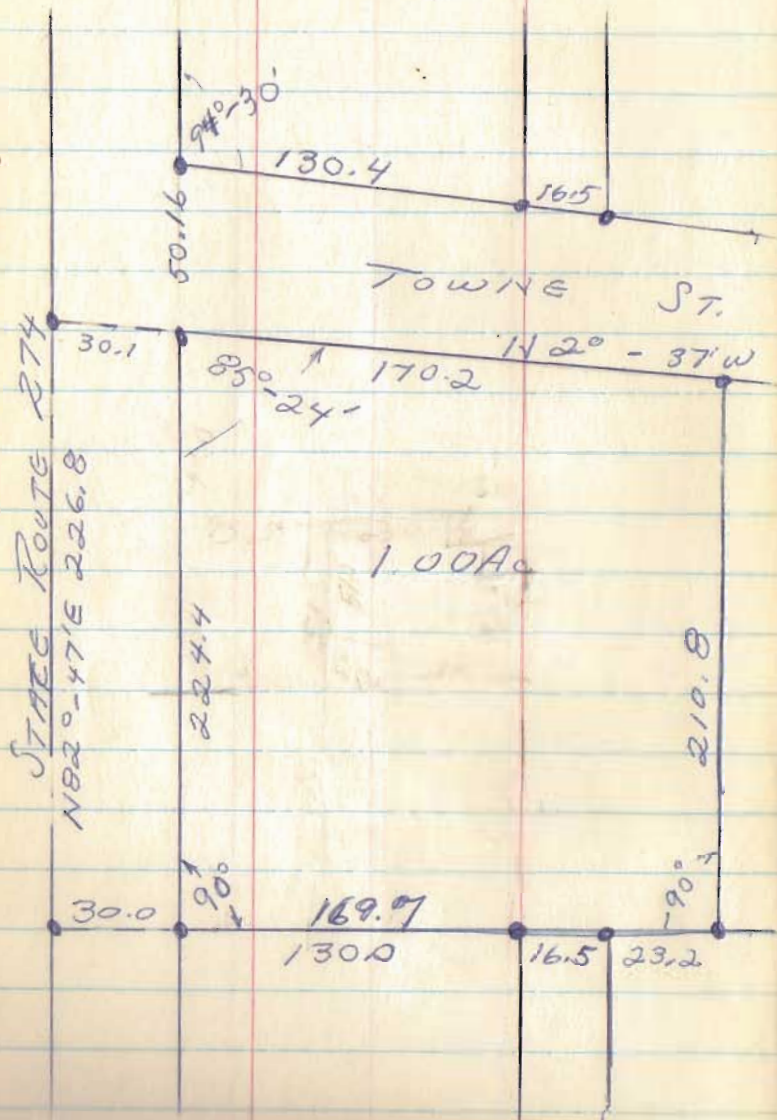 94°-30'
130.4
16.5
50.16
TOWNE ST.
30.1
N 2° - 37' W
85°-24'
170.2
STATE ROUTE 274
N82°-47'E 226.8
1.00Ac
224.4
210.8
90°
90°
30.0
169.7
130.0
16.5
23.2